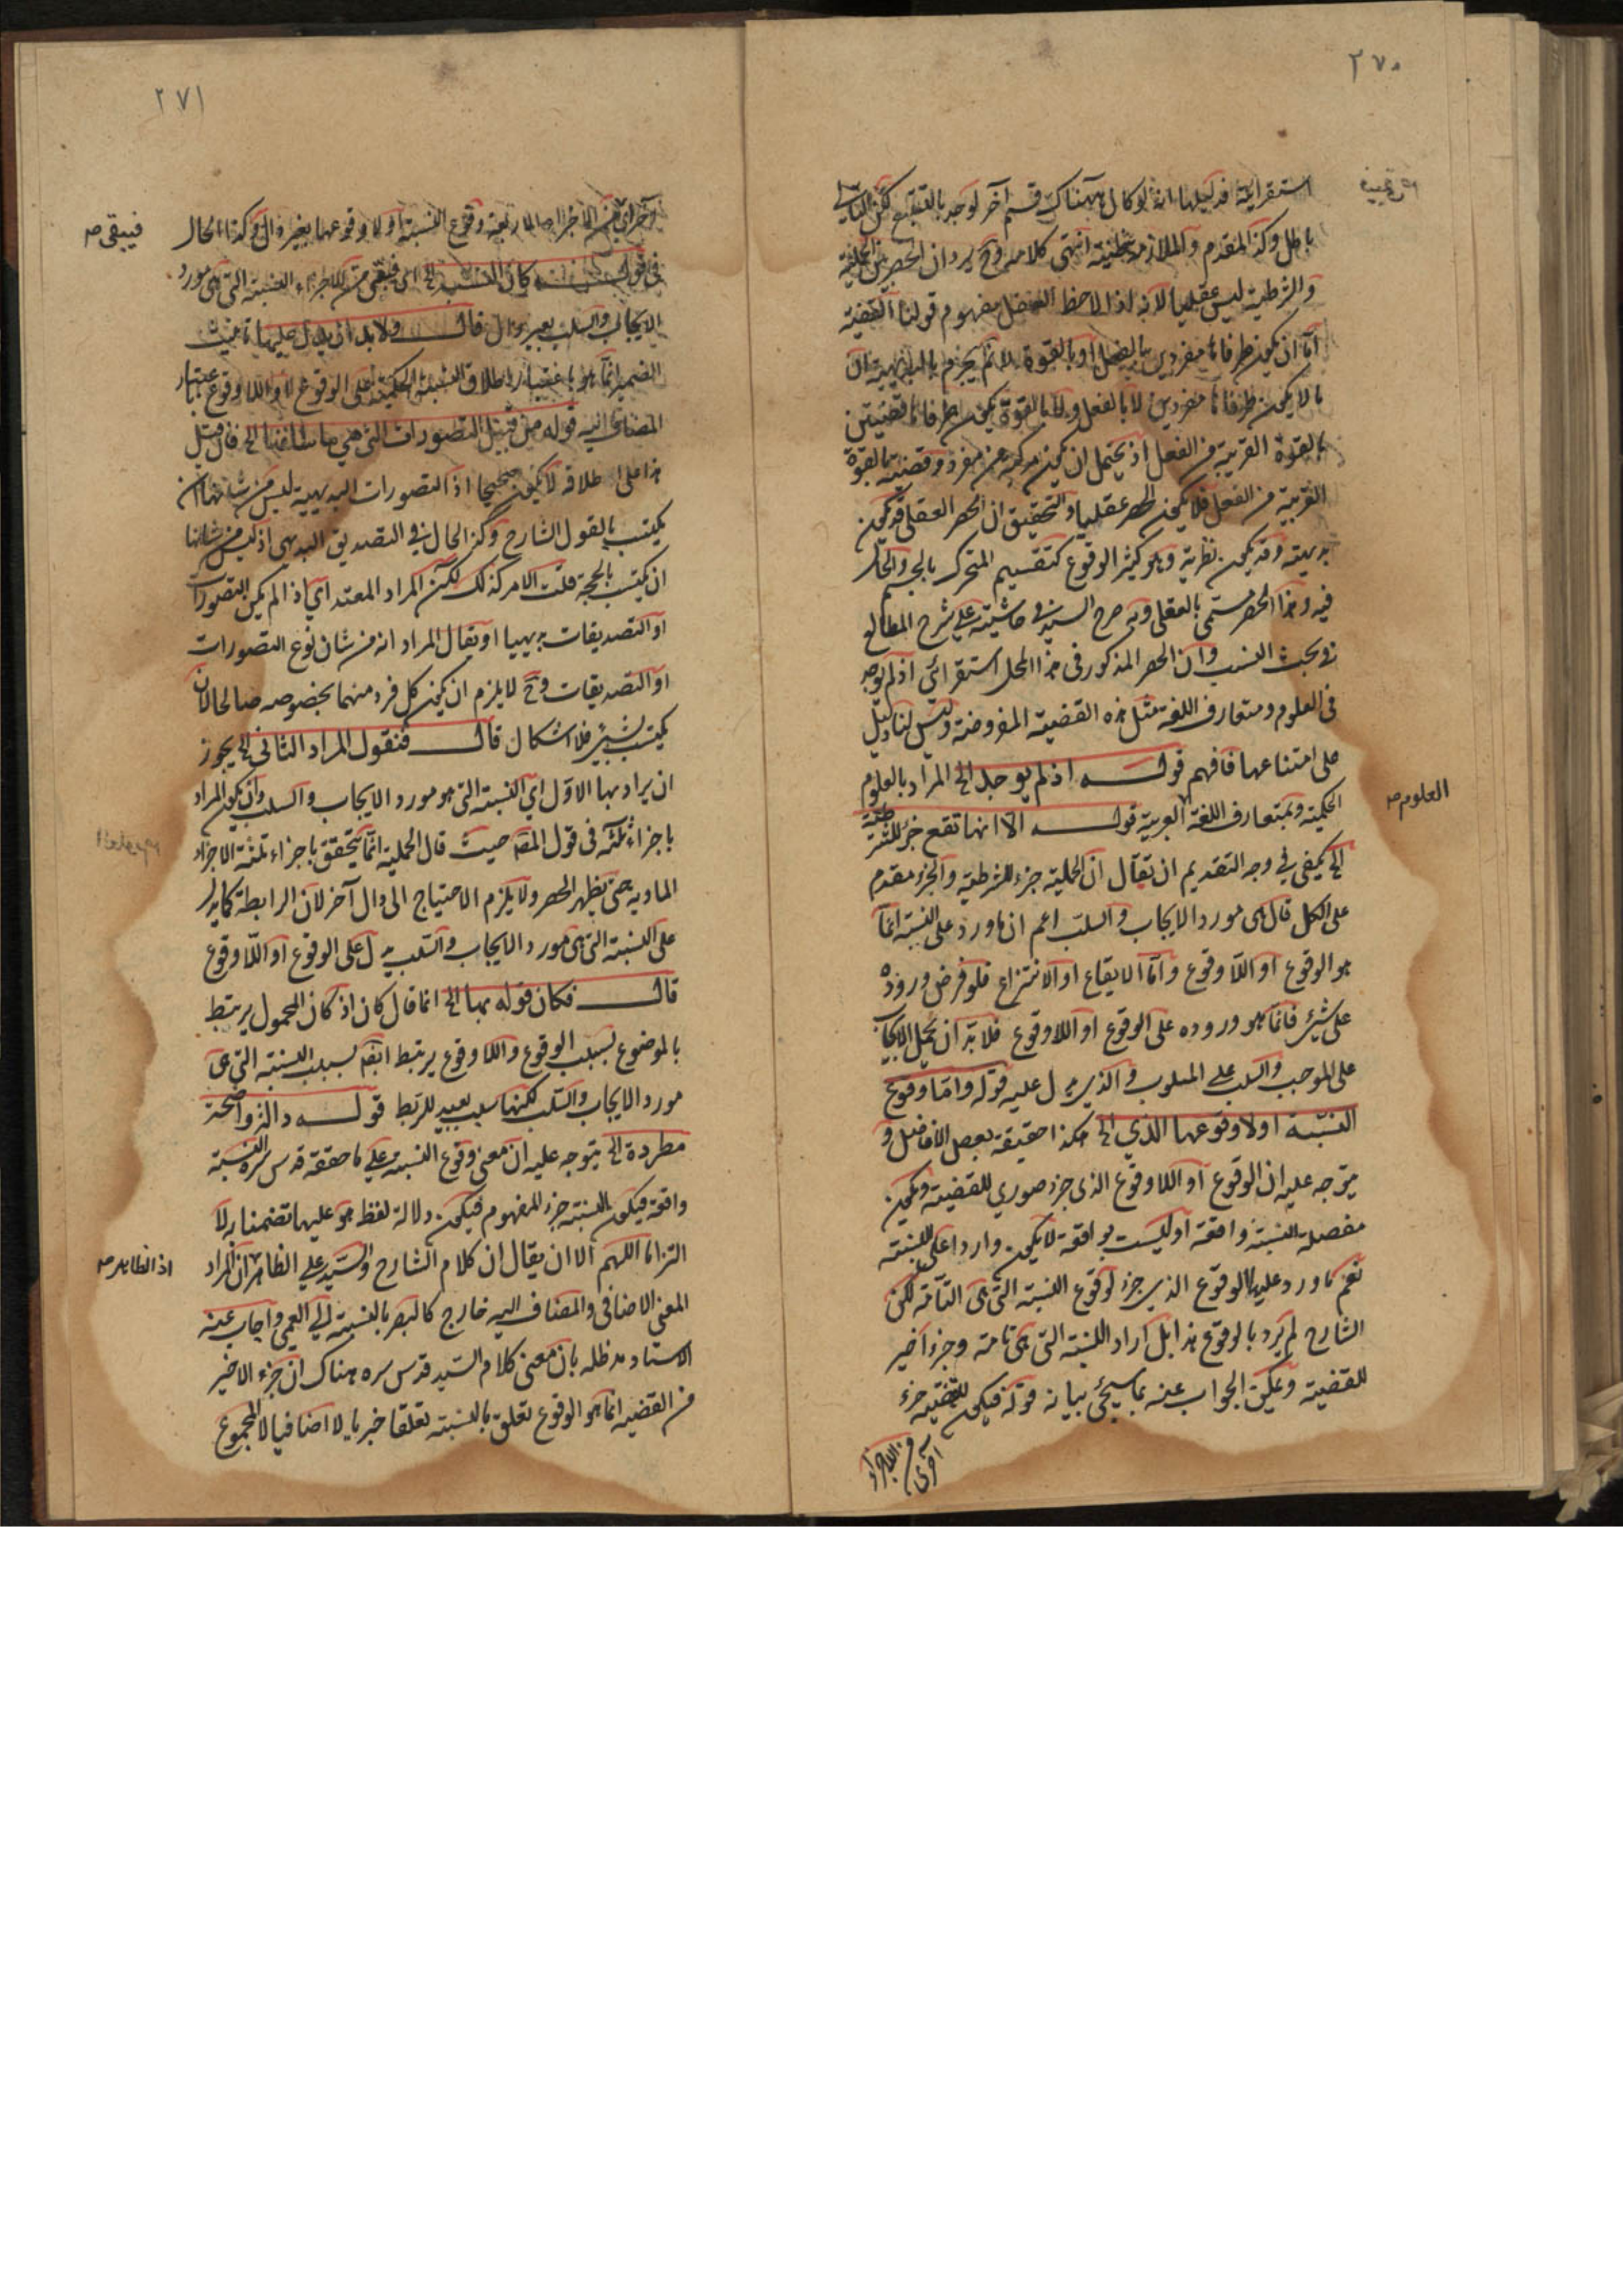 ٢٧٠
استقرائية فدليلها انه لو كان ههنا قسم آخر لوجد بالتتبع لكن التالي
باطل وكذا المقدم والملازمة ظنية انتهى كلامه وح يرد ان الحصر بين الحملية
والشرطية ليس عقليا لانه اذا لاحظ العقل مفهوم قولنا القضية
اما ان يكون طرفاها مفردين بالفعل او بالقوة لا ثم يجزم بالبديهة ان
ما لا يكون طرفاها مفردين لا بالفعل ولا بالقوة يكون طرفاها قضيتين
بالقوة القريبة من الفعل اذ يحتمل ان يكون مركبة من مفرد وقضية بالقوة
القريبة من الفعل فلا يكون الحصر عقليا والتحقيق ان الحصر العقلي قد يكون
بديهية وقد يكون نظرية وهو كثير الوقوع كتقسيم المتحرك بالجسم والحال
فيه وهذا الحصر مسمى بالعقلي وبه صرح السيد في حاشيته على شرح المطالع
في بحث النسب وان الحصر المذكور في هذا المحل استقرائي اذ لم يوجد
في العلوم ومتعارف اللغة مثل هذه القضية المفروضة وليس لنا دليل
على امتناعها فافهم قوله اذ لم يوجد الخ المراد بالعلوم
العلوم صح
الحكمية وبمتعارف اللغة العربية قوله الا انها تقع جزء للشرطية
الخ يكفي في وجه التقديم ان يقال ان الحملية جزء للشرطية والجزء مقدم
على الكل قال هي مورد الايجاب والسلب اعم ان ما ورد على النسبة انما
هو الوقوع او اللا وقوع واما الايقاع او الانتزاع فلو فرض وروده
على شيء فانما هو وروده على الوقوع او اللا وقوع فلا بد ان يحمل الايجاب
على الموجب والسلب على المسلوب والذي يدل عليه قوله واما وقوع
النسبة او لا وقوعها الذي الخ هكذا حقيقة بعض الافاضل و
يتوجه عليه ان الوقوع او اللا وقوع الذي جزء صوري للقضية ويكون
مفصلة النسبة واقعة او ليست بواقعة لا يكون واردا على النسبة
نعم ما ورد عليها الوقوع الذي جزء لوقوع النسبة التي هي التامة لكن
الشارح لم يرد بالوقوع هذا بل اراد النسبة التي هي تامة وجزء اخير
للقضية ويمكن الجواب عنه بما سيجئ بيانه قوله فيكون للقضية جزء
آخر اي من الاجزاء
٢٧١
آخر اي من الاجزاء الاربعة وقوع النسبة او لا وقوعها بغير دال وكذا الحال
فيبقى صح
في قوله كان النسبة الخ اي فبقي من الاجزاء النسبة التي هي مورد
الايجاب والسلب بغير دال قال ولا بد ان يدل عليها تانيث
الضمير انما هو باعتبار اطلاق النسبة الحكمية على الوقوع او اللا وقوع باعتبار
المضاف اليه قوله من قبيل التصورات التي هي ما شانها الخ فان قيل
هذا على اطلاقه لا يكون صحيحا اذ التصورات البديهية ليس من شانها ان
يكتسب بالقول الشارح وكذا الحال في التصديق البديهي اذ ليس من شانها
ان يكتسب بالحجة قلت الامر كذلك لكن المراد المعتد اي اذا لم يكن التصورات
او التصديقات بديهيا او يقال المراد انه من شان نوع التصورات
او التصديقات وح لا يلزم ان يكون كل فرد منهما بخصوصه صالحا لان
يكتسب بشيء فلا اشكال قال فنقول المراد الثاني الخ يجوز
ان يراد بها الاول اي النسبة التي هو مورد الايجاب والسلب وان يكون المراد
باجزاء ثلثة في قول المصنف حيث قال الحملية انما يتحقق باجزاء ثلثة الاجزاء
المادية حتى يظهر الحصر ولا يلزم الاحتياج الى دال آخر لان الرابطة كما يدل
على النسبة التي هي مورد الايجاب والسلب يدل على الوقوع او اللا وقوع
قال فكان قوله بها الخ انما قال كان اذ كان المحمول يرتبط
بالموضوع بسبب الوقوع واللا وقوع يرتبط ايضا بسبب النسبة التي هي
مورد الايجاب والسلب لكنها سبب بعيد للربط قوله دلالة واضحة
مطردة الخ يتوجه عليه ان معنى وقوع النسبة على ما حققه قدس سره النسبة
واقعة فيكون النسبة جزء المفهوم فيكون دلالة لفظ هو عليها تضمنا لا
التزاما اللهم الا ان يقال ان كلام الشارح والسيد على الظاهر ان المراد
اذ الظاهر صح
المعنى الاضافي والمضاف اليه خارج كالبصر بالنسبة الى العمى واجاب عنه
الاستاد مد ظله بان معنى كلام السيد قدس سره هناك ان جزء الاخير
من القضية انما هو الوقوع تعلق بالنسبة تعلقا خبريا لا اضافيا لا المجموع